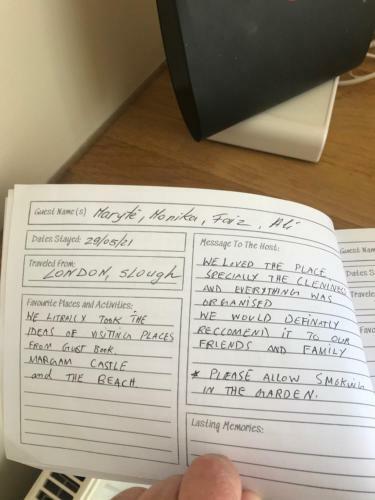 Guest Name(s) Maryte, Monika, Faiz, Ali
Dates Stayed: 29/05/21
Traveled From:
LONDON, Slough
Favourite Places and Activities:
WE LITRALY TOOK THE
IDEAS OF VISITING PLACES
FROM GUST BOOK.
MARGAM CASTLE
and THE BEACH
Message To The Host:
WE LOVED THE PLACE
SPECIALLY THE CLENLINESS
AND EVERYTHING WAS
ORGANISED
WE WOULD DEFINATLY
RECCOMEND IT TO OUR
FRIENDS AND FAMILY
* PLEASE ALLOW SMOKING
IN THE GARDEN.
Lasting Memories:
Guest Na
Dates S
Travele
Favo